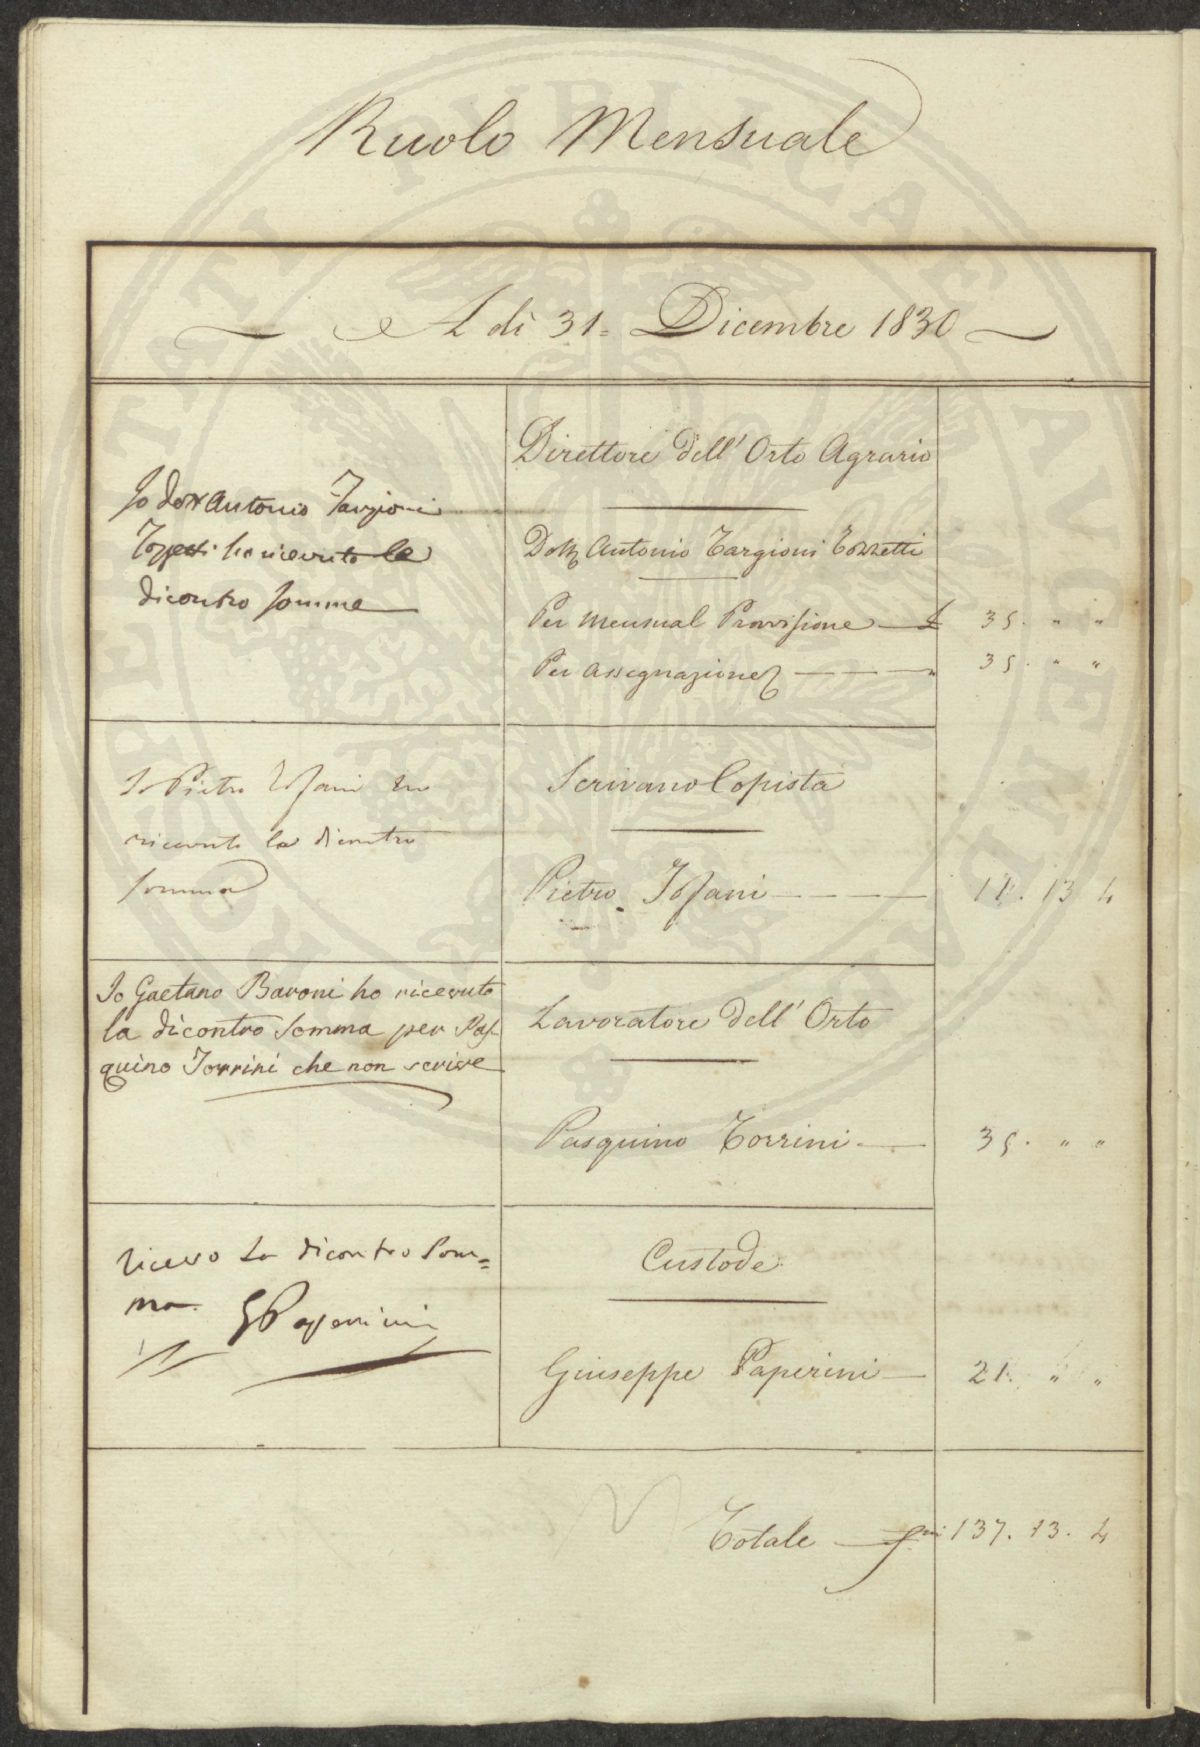 Ruolo Mensuale
A dì 31 = Dicembre 1830
Direttore dell' Orto Agrario
Io Dott Antonio Targioni
Tozzetti ho ricevuto la
dicontro somma
Dott Antonio Targioni Tozzetti
Per mensual Provvisione £ 35. " "
Per assegnazione " 35. " "
Scrivano Copista
Io Pietro Ioffani ho
ricevuto la dicontro
somma
Pietro Ioffani 11. 13 4
Io Gaetano Baroni ho ricevuto
la dicontro Somma per Pas-
quino Torrini che non scrive
Lavoratore dell' Orto
Pasquino Torrini 35. " "
Custode
ricevo la dicontro som=
ma. G Paperini
Giuseppe Paperini 21. " "
Totale 137. 13. 4